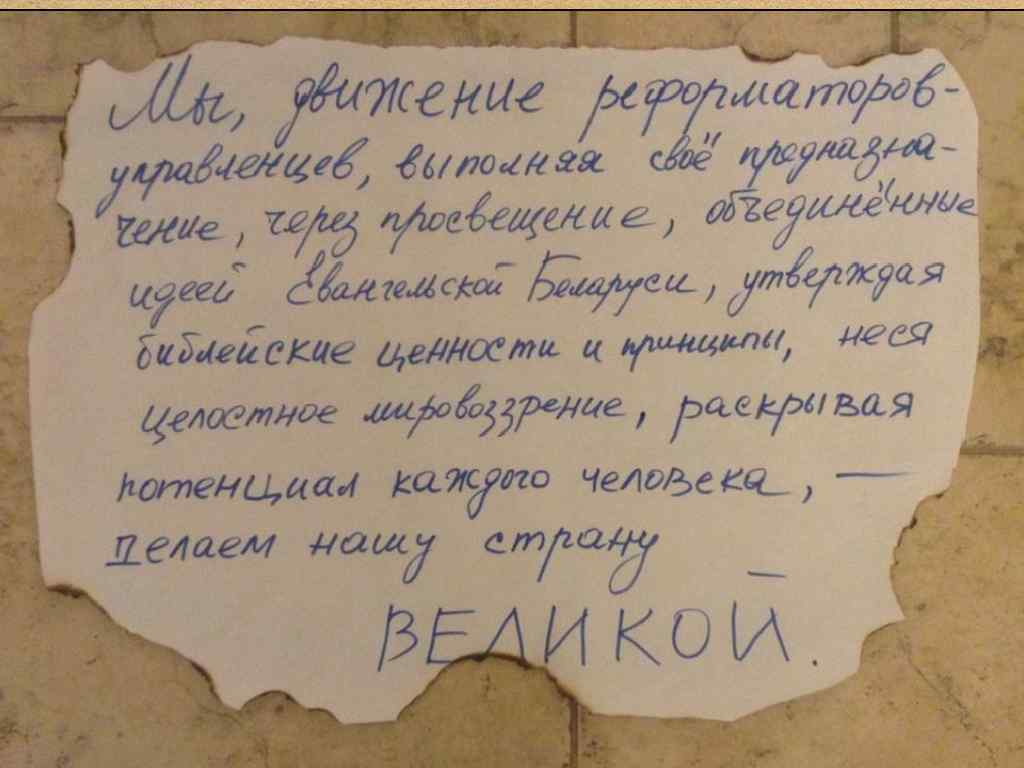 Мы, движение реформаторов-
управленцев, выполняя своё предназна-
чение, через просвещение, объединённые
идеей Евангельской Беларуси, утверждая
библейские ценности и принципы, неся
целостное мировоззрение, раскрывая
потенциал каждого человека, —
делаем нашу страну
ВЕЛИКОЙ.